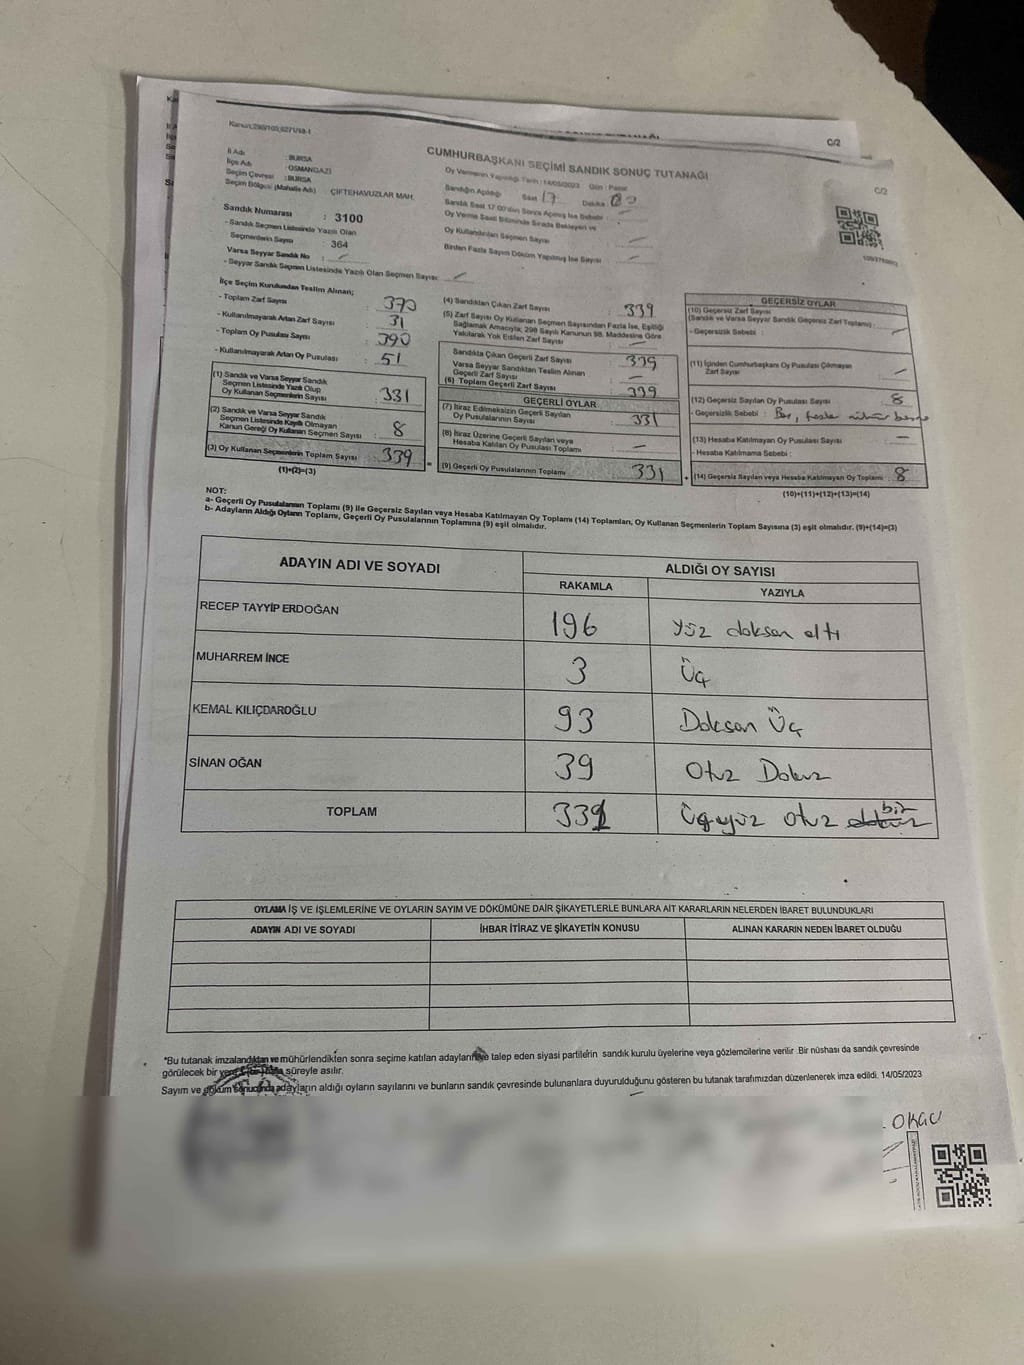 Kanun:298/105,6271/18-1
C/2
CUMHURBAŞKANI SEÇİMİ SANDIK SONUÇ TUTANAĞI
C/2
İl Adı : BURSA
İlçe Adı : OSMANGAZİ
Seçim Çevresi : BURSA
Seçim Bölgesi (Mahalle Adı) : ÇİFTEHAVUZLAR MAH.
Oy Vermenin Yapıldığı Tarih : 14/05/2023 Gün : Pazar
Sandığın Açıldığı Saat 17 Dakika 00
Sandık Saat 17:00'den Sonra Açılmış İse Sebebi :
Oy Verme Saati Bitiminde Sırada Bekleyen ve
Oy Kullandırılan Seçmen Sayısı
Birden Fazla Sayım Döküm Yapılmış İse Sayısı
Sandık Numarası : 3100
- Sandık Seçmen Listesinde Yazılı Olan
Seçmenlerin Sayısı : 364
Varsa Seyyar Sandık No
- Seyyar Sandık Seçmen Listesinde Yazılı Olan Seçmen Sayısı:
İlçe Seçim Kurulundan Teslim Alınan;
- Toplam Zarf Sayısı : 370
- Kullanılmayarak Artan Zarf Sayısı : 31
- Toplam Oy Pusulası Sayısı : 390
- Kullanılmayarak Artan Oy Pusulası : 51
(1) Sandık ve Varsa Seyyar Sandık
Seçmen Listesinde Yazılı Olup
Oy Kullanan Seçmenlerin Sayısı : 331
(2) Sandık ve Varsa Seyyar Sandık
Seçmen Listesinde Kayıtlı Olmayan
Kanun Gereği Oy Kullanan Seçmen Sayısı : 8
(3) Oy Kullanan Seçmenlerin Toplam Sayısı : 339
(1)+(2)=(3)
(4) Sandıktan Çıkan Zarf Sayısı : 339
(5) Zarf Sayısı Oy Kullanan Seçmen Sayısından Fazla İse, Eşitliği
Sağlamak Amacıyla; 298 Sayılı Kanunun 98. Maddesine Göre
Yakılarak Yok Edilen Zarf Sayısı :
Sandıkta Çıkan Geçerli Zarf Sayısı : 339
Varsa Seyyar Sandıktan Teslim Alınan
Geçerli Zarf Sayısı
(6) Toplam Geçerli Zarf Sayısı : 339
GEÇERLİ OYLAR
(7) İtiraz Edilmeksizin Geçerli Sayılan
Oy Pusulalarının Sayısı : 331
(8) İtiraz Üzerine Geçerli Sayılan veya
Hesaba Katılan Oy Pusulası Toplamı : -
(9) Geçerli Oy Pusulalarının Toplamı : 331
GEÇERSİZ OYLAR
(10) Geçersiz Zarf Sayısı
(Sandık ve Varsa Seyyar Sandık Geçersiz Zarf Toplamı) :
- Geçersizlik Sebebi :
(11) İçinden Cumhurbaşkanı Oy Pusulası Çıkmayan
Zarf Sayısı
(12) Geçersiz Sayılan Oy Pusulası Sayısı : 8
- Geçersizlik Sebebi :
(13) Hesaba Katılmayan Oy Pusulası Sayısı : -
- Hesaba Katılmama Sebebi :
(14) Geçersiz Sayılan veya Hesaba Katılmayan Oy Toplamı : 8
(10)+(11)+(12)+(13)=(14)
NOT:
a- Geçerli Oy Pusulalarının Toplamı (9) ile Geçersiz Sayılan veya Hesaba Katılmayan Oy Toplamı (14) Toplamları, Oy Kullanan Seçmenlerin Toplam Sayısına (3) eşit olmalıdır. (9)+(14)=(3)
b- Adayların Aldığı Oyların Toplamı, Geçerli Oy Pusulalarının Toplamına (9) eşit olmalıdır.
ADAYIN ADI VE SOYADI
ALDIĞI OY SAYISI
RAKAMLA YAZIYLA
RECEP TAYYİP ERDOĞAN 196 yüz doksan altı
MUHARREM İNCE 3 Üç
KEMAL KILIÇDAROĞLU 93 Doksan Üç
SİNAN OĞAN 39 Otuz Dokuz
TOPLAM 331 Üçyüz otuz bir
OYLAMA İŞ VE İŞLEMLERİNE VE OYLARIN SAYIM VE DÖKÜMÜNE DAİR ŞİKAYETLERLE BUNLARA AİT KARARLARIN NELERDEN İBARET BULUNDUKLARI
ADAYIN ADI VE SOYADI İHBAR İTİRAZ VE ŞİKAYETİN KONUSU ALINAN KARARIN NEDEN İBARET OLDUĞU
*Bu tutanak imzalandıktan ve mühürlendikten sonra seçime katılan adayların ve talep eden siyasi partilerin sandık kurulu üyelerine veya gözlemcilerine verilir. Bir nüshası da sandık çevresinde
görülecek bir yere süreyle asılır.
Sayım ve döküm sonucunda adayların aldığı oyların sayılarını ve bunların sandık çevresinde bulunanlara duyurulduğunu gösteren bu tutanak tarafımızdan düzenlenerek imza edildi. 14/05/2023